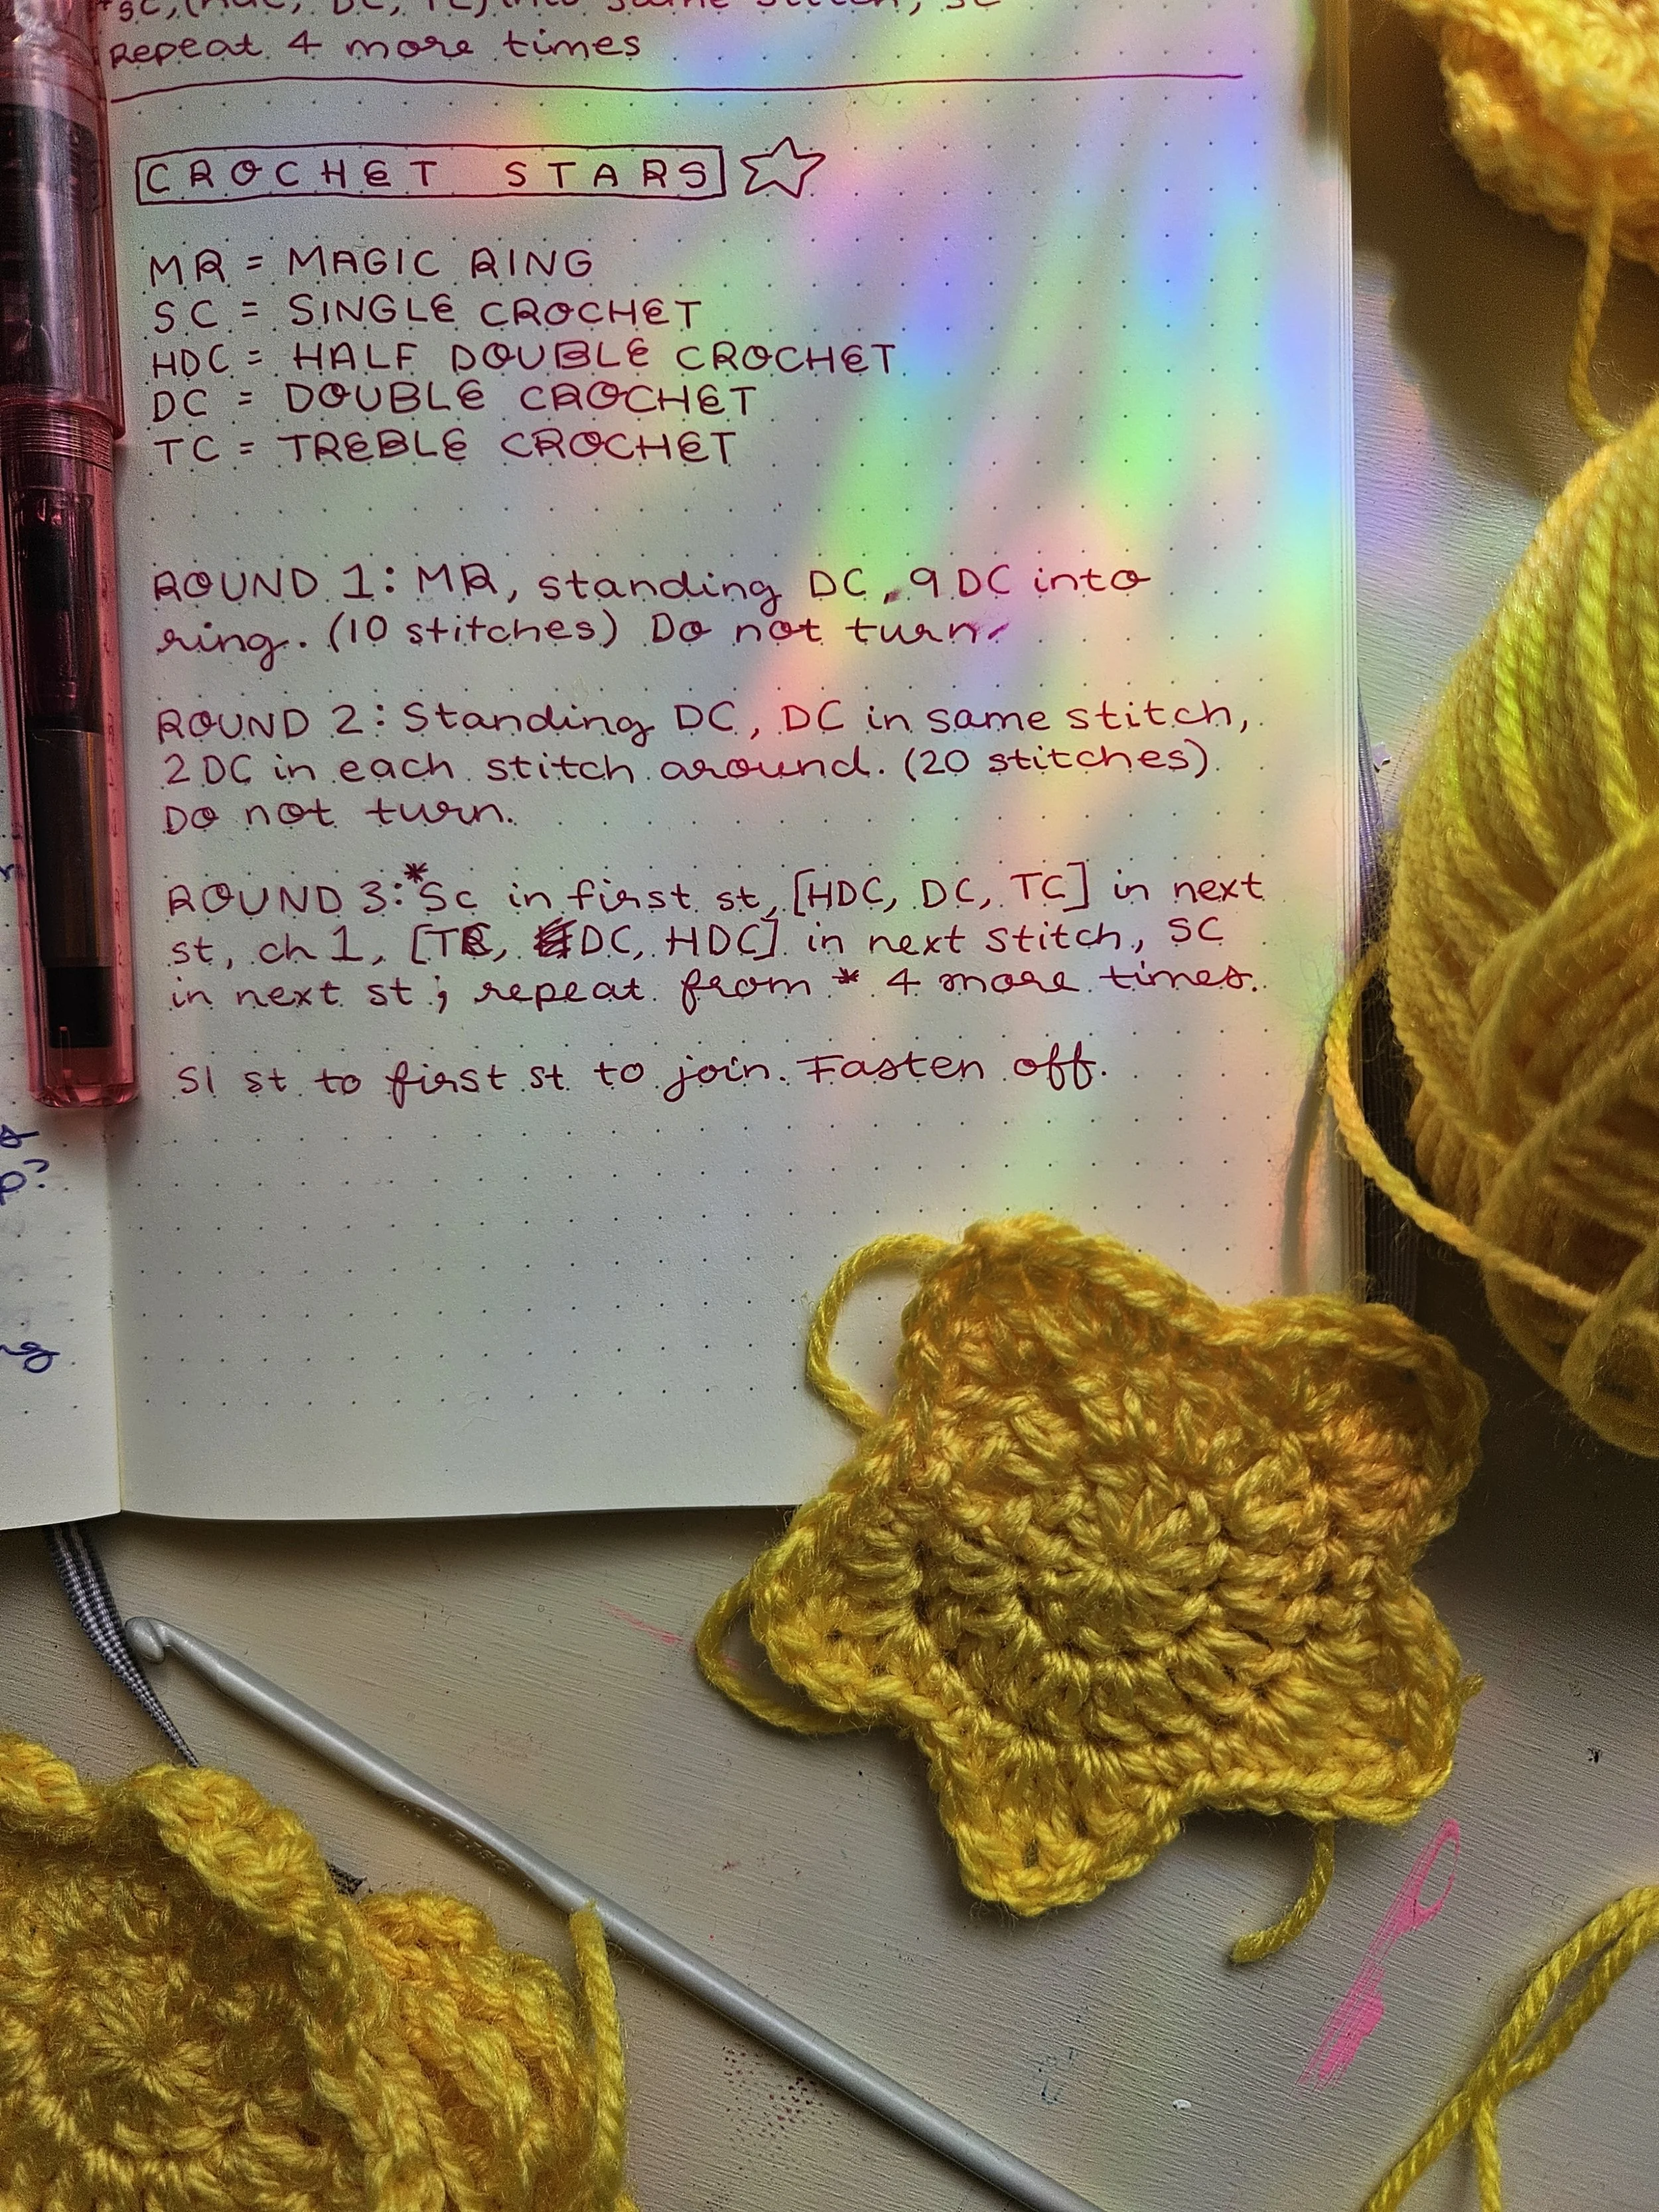 *SC, (HDC, DC, TC) into same stitch, SC
Repeat 4 more times
CROCHET STARS
MR = MAGIC RING
SC = SINGLE CROCHET
HDC = HALF DOUBLE CROCHET
DC = DOUBLE CROCHET
TC = TREBLE CROCHET
ROUND 1: MR, standing DC, 9 DC into
ring. (10 stitches) Do not turn.
ROUND 2: Standing DC, DC in same stitch,
2 DC in each stitch around. (20 stitches)
Do not turn.
ROUND 3: *Sc in first st, [HDC, DC, TC] in next
st, ch 1, [TC, DC, HDC] in next stitch, SC
in next st; repeat from * 4 more times.
Sl st to first st to join. Fasten off.